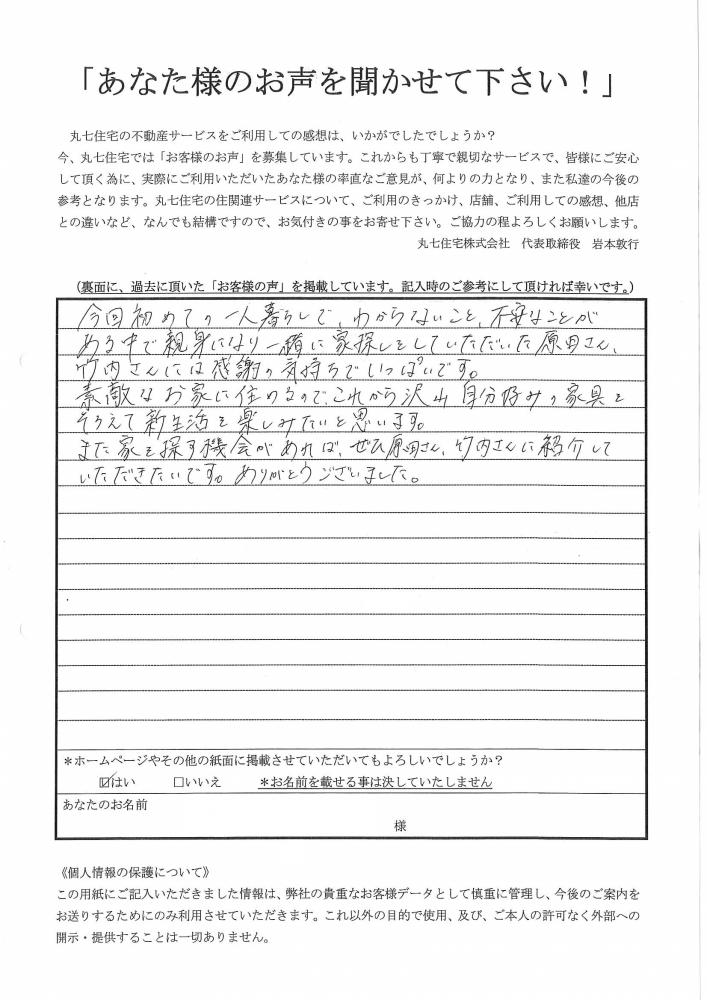 「あなた様のお声を聞かせて下さい！」
丸七住宅の不動産サービスをご利用しての感想は、いかがでしたでしょうか？
今、丸七住宅では「お客様のお声」を募集しています。これからも丁寧で親切なサービスで、皆様にご安心
して頂く為に、実際にご利用いただいたあなた様の率直なご意見が、何よりの力となり、また私達の今後の
参考となります。丸七住宅の住関連サービスについて、ご利用のきっかけ、店舗、ご利用しての感想、他店
との違いなど、なんでも結構ですので、お気付きの事をお寄せ下さい。ご協力の程よろしくお願いします。
丸七住宅株式会社　代表取締役　岩本敦行
（裏面に、過去に頂いた「お客様の声」を掲載しています。記入時のご参考にして頂ければ幸いです。）
今回初めての一人暮らしで、わからないこと、不安なことが
ある中で親身になり一緒に家探しをしていただいた原田さん、
竹内さんには感謝の気持ちでいっぱいです。
素敵なお家に住めるので、これから沢山自分好みの家具を
そろえて新生活を楽しみたいと思います。
また家を探す機会があれば、ぜひ原田さん、竹内さんに紹介して
いただきたいです。ありがとうございました。
＊ホームページやその他の紙面に掲載させていただいてもよろしいでしょうか？
☑はい　□いいえ　＊お名前を載せる事は決していたしません
あなたのお名前
様
《個人情報の保護について》
この用紙にご記入いただきました情報は、弊社の貴重なお客様データとして慎重に管理し、今後のご案内を
お送りするためにのみ利用させていただきます。これ以外の目的で使用、及び、ご本人の許可なく外部への
開示・提供することは一切ありません。